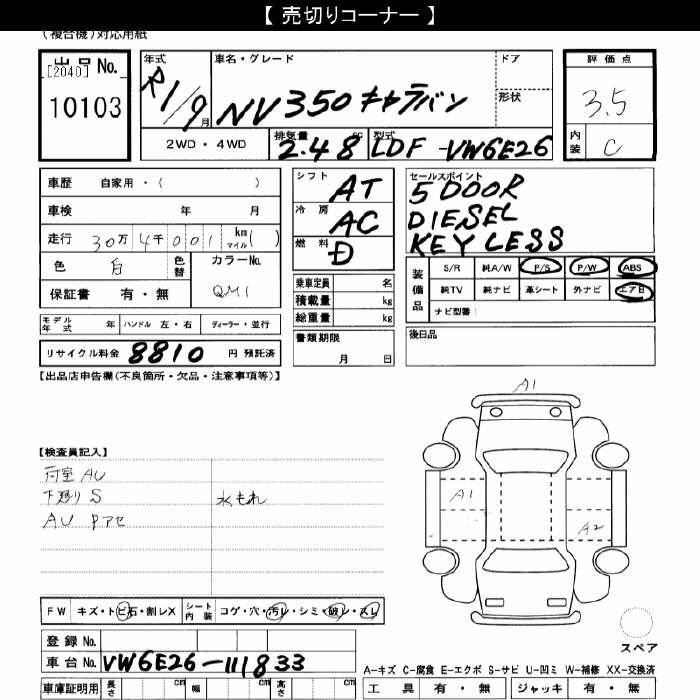 【 売切りコーナー 】
(複合機)対応用紙
出品 No.
[2040]
10103
年式 R1/9月
車名・グレード NV350 キャラバン
ドア
形状
評価点 3.5
内装 C
2WD・4WD
排気量 2.48 cc
型式 LDF-VW6E26
車歴 自家用・( )
車検 年 月
走行 30万 4千001 km マイル( )
色 白 色替
カラーNo. QM1
保証書 有・無
シフト AT
冷房 AC
燃料 D
セールスポイント
5 DOOR
DIESEL
KEY LESS
装備品
S/R 純A/W P/S P/W ABS
純TV 純ナビ 革シート 外ナビ エアB
ナビ型番:
乗車定員 名
積載量 kg
総重量 kg
書類期限
月 日
後日品
モデル年式 年 ハンドル 左・右 ディーラー・並行
リサイクル料金 8810 円 預託済
【出品店申告欄(不良箇所・欠品・注意事項等)】
A1
【検査員記入】
荷室 AU
下廻り S 水もれ
AU Pアセ
A1
A2
FW キズ・トビ石・割レX シート内装 コゲ・穴・汚レ・シミ・破レ・スレ
スペア
登録 No.
車台 No. VW6E26-111833
A-キズ C-腐食 E-エクボ S-サビ U-凹ミ W-補修 XX-交換済
車庫証明用 長さ cm 幅 cm 高さ cm
工具 有・無 ジャッキ 有・無